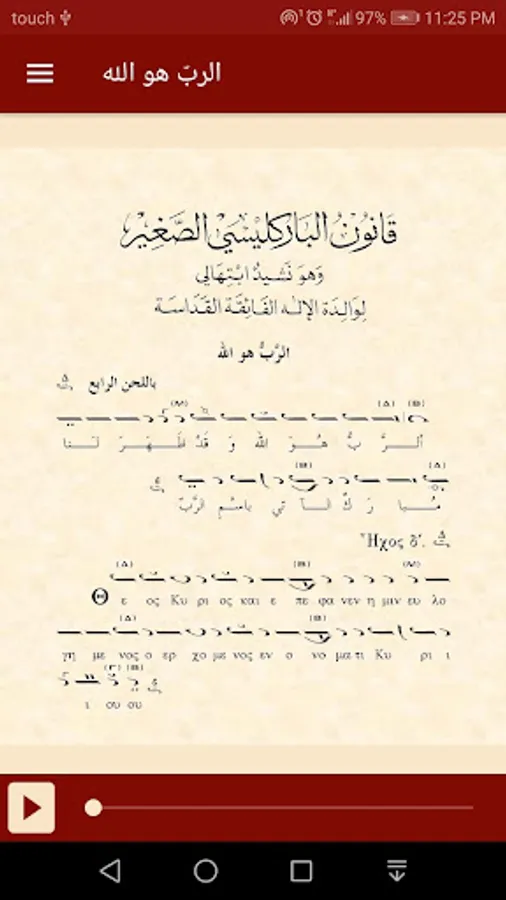 touch 97% 11:25 PM
الربّ هو الله
قَانُونُ البَارَكْلِيسِي الصَّغِيْر
وَهوَ نَشِيدُ ابْتِهَالِي
لِوَالِدَة الإلـه الفَائِقَة القَدَاسَة
الرَّبُّ هو الله
باللحن الرابع
(M) (Δ) (B)
ألـرَّ بُّ هُـوَ اللهُ وَ قَدْ ظَـهَـرَ لَـنـا
(B) (Δ)
مُـبـا رَ كٌ الـآ تي باسْمِ الرَّبّ
Ἦχος δ'.
(Δ) (B) (M)
Θ ε ος Κυ ρι ος και ε πε φα νεν η μιν ευ λο
(Δ) (B)
γη με νος ο ερ χο με νος εν ο νο μα τι Κυ ρι ι
(Γ) (B)
ι ου ου